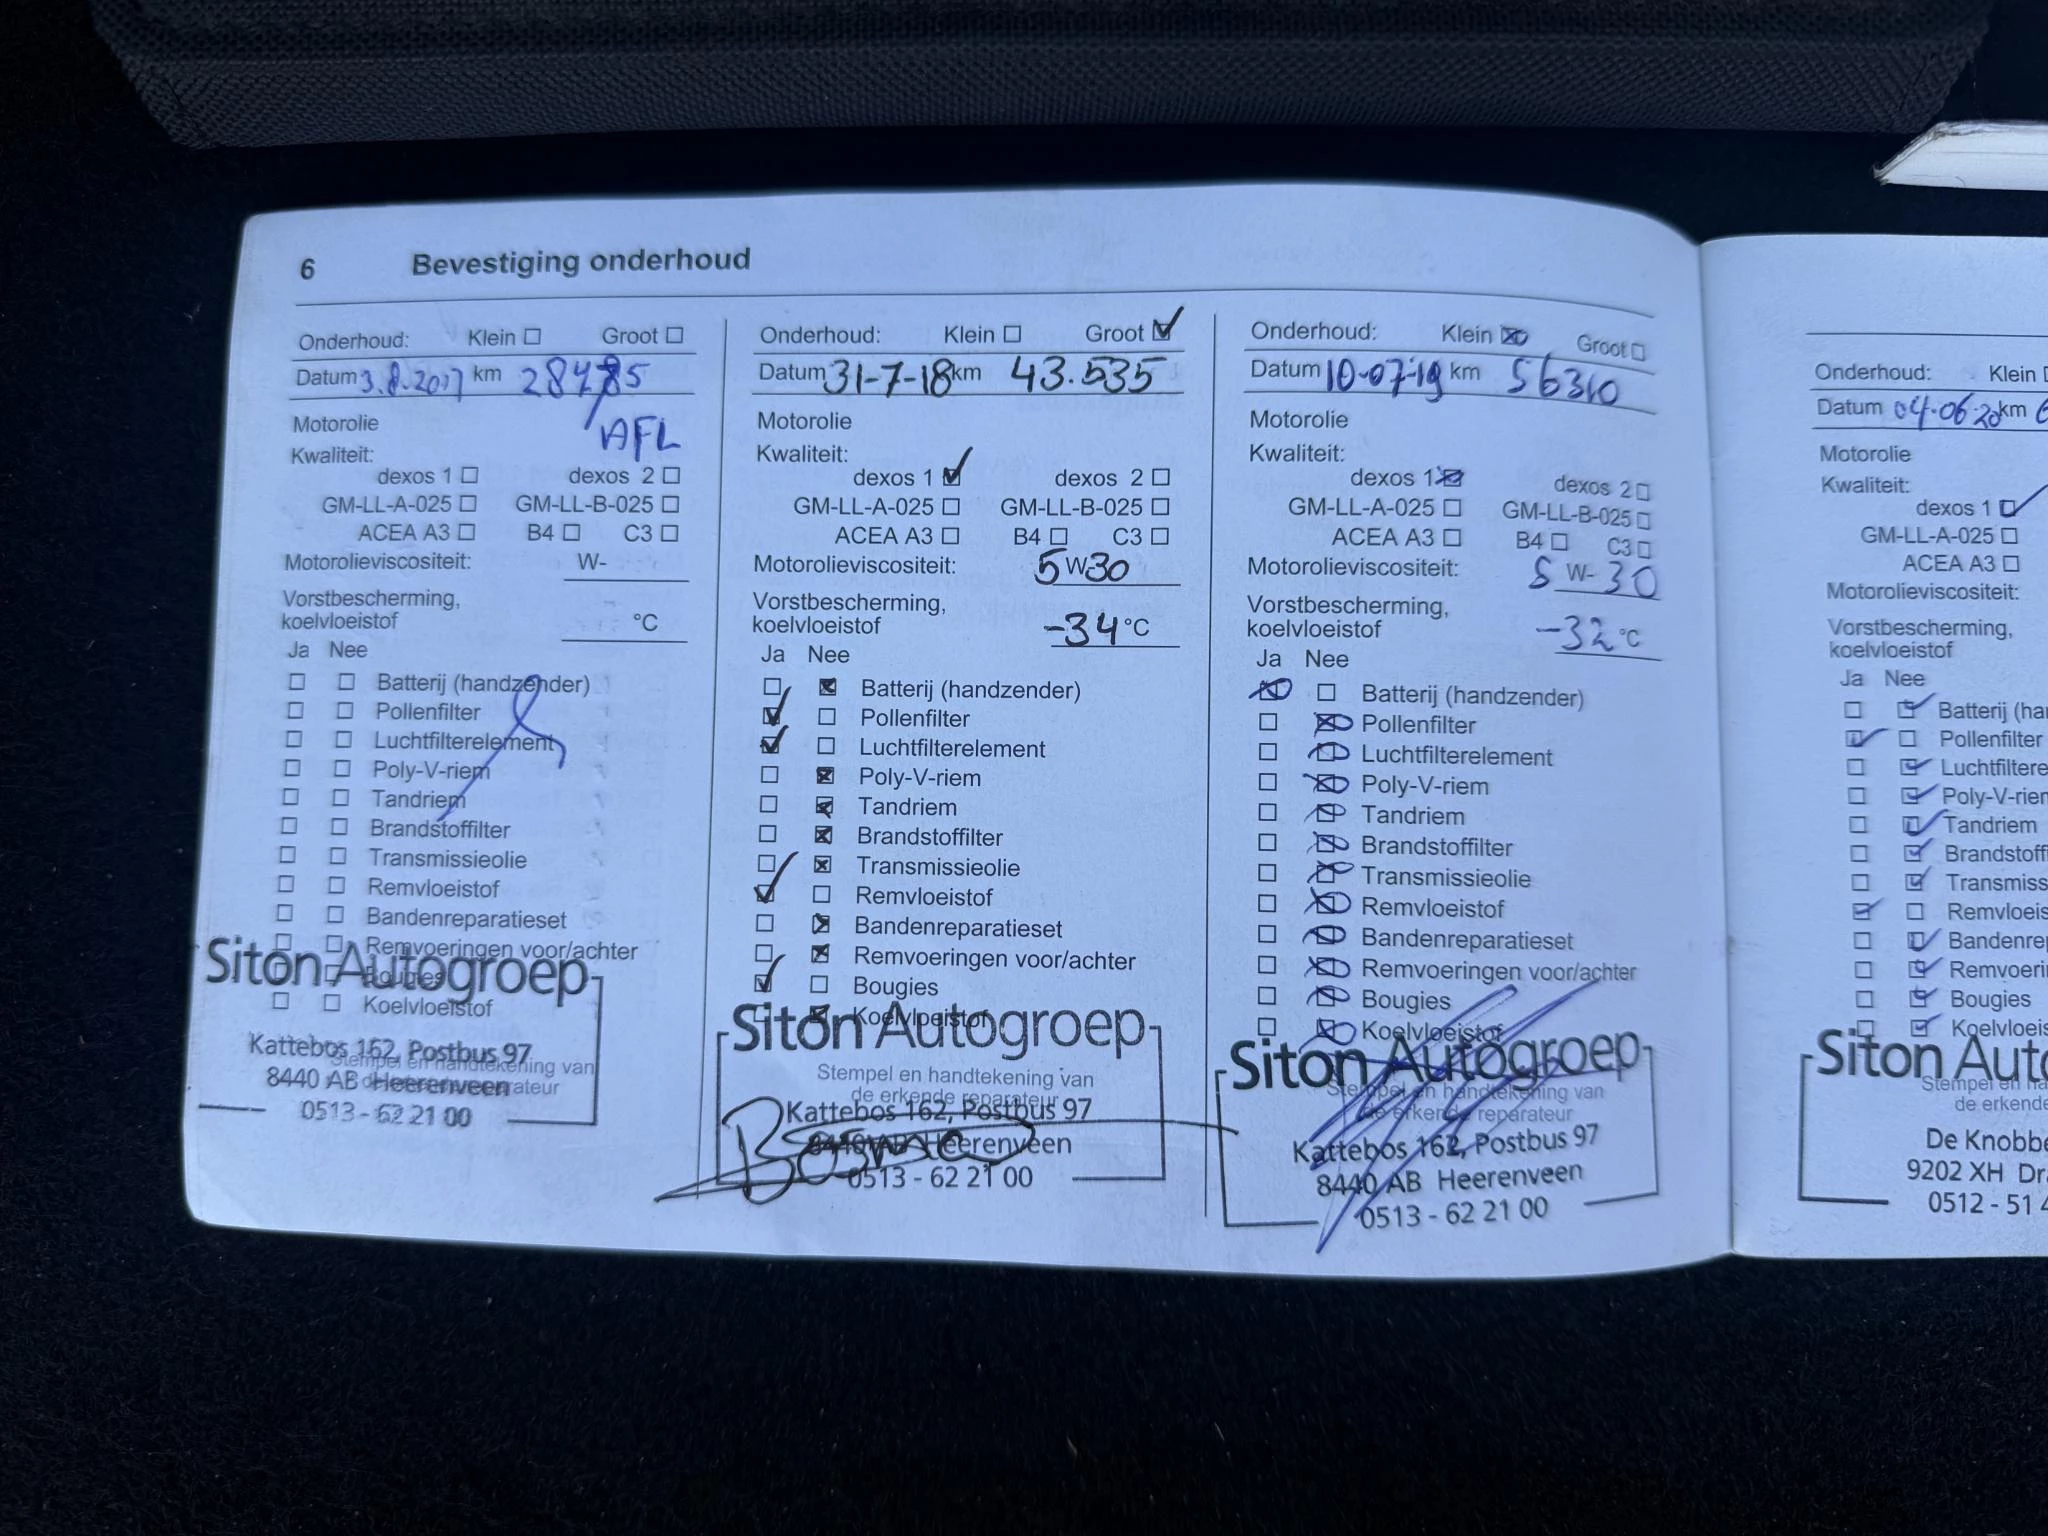 6 Bevestiging onderhoud
Onderhoud: Klein Groot
Datum 3.8.2017 km 28485
AFL
Motorolie
Kwaliteit:
dexos 1 dexos 2
GM-LL-A-025 GM-LL-B-025
ACEA A3 B4 C3
Motorolieviscositeit: W-
Vorstbescherming,
koelvloeistof °C
Ja Nee
Batterij (handzender)
Pollenfilter
Luchtfilterelement
Poly-V-riem
Tandriem
Brandstoffilter
Transmissieolie
Remvloeistof
Bandenreparatieset
Remvoeringen voor/achter
Bougies
Koelvloeistof
Siton Autogroep
Stempel en handtekening van
Kattebos 162, Postbus 97
8440 AB Heerenveen
0513 - 62 21 00
Onderhoud: Klein Groot
Datum 31-7-18 km 43.535
Motorolie
Kwaliteit:
dexos 1 dexos 2
GM-LL-A-025 GM-LL-B-025
ACEA A3 B4 C3
Motorolieviscositeit: 5 W-30
Vorstbescherming,
koelvloeistof -34 °C
Ja Nee
Batterij (handzender)
Pollenfilter
Luchtfilterelement
Poly-V-riem
Tandriem
Brandstoffilter
Transmissieolie
Remvloeistof
Bandenreparatieset
Remvoeringen voor/achter
Bougies
Koelvloeistof
Siton Autogroep
Stempel en handtekening van
de erkende reparateur
Kattebos 162, Postbus 97
8440 AB Heerenveen
0513 - 62 21 00
Onderhoud: Klein Groot
Datum 10-07-19 km 56310
Motorolie
Kwaliteit:
dexos 1 dexos 2
GM-LL-A-025 GM-LL-B-025
ACEA A3 B4 C3
Motorolieviscositeit: 5 W- 30
Vorstbescherming,
koelvloeistof -32 °C
Ja Nee
Batterij (handzender)
Pollenfilter
Luchtfilterelement
Poly-V-riem
Tandriem
Brandstoffilter
Transmissieolie
Remvloeistof
Bandenreparatieset
Remvoeringen voor/achter
Bougies
Koelvloeistof
Siton Autogroep
Stempel en handtekening van
de erkende reparateur
Kattebos 162, Postbus 97
8440 AB Heerenveen
0513 - 62 21 00
Onderhoud: Klein
Datum 04-06-20 km 6
Motorolie
Kwaliteit:
dexos 1
GM-LL-A-025
ACEA A3
Motorolieviscositeit:
Vorstbescherming,
koelvloeistof
Ja Nee
Batterij (ha
Pollenfilter
Luchtfiltere
Poly-V-rien
Tandriem
Brandstoffi
Transmiss
Remvloeis
Bandenrep
Remvoerin
Bougies
Koelvloeis
Siton Auto
Stempel en ha
de erkende
De Knobbe
9202 XH Dra
0512 - 51 4